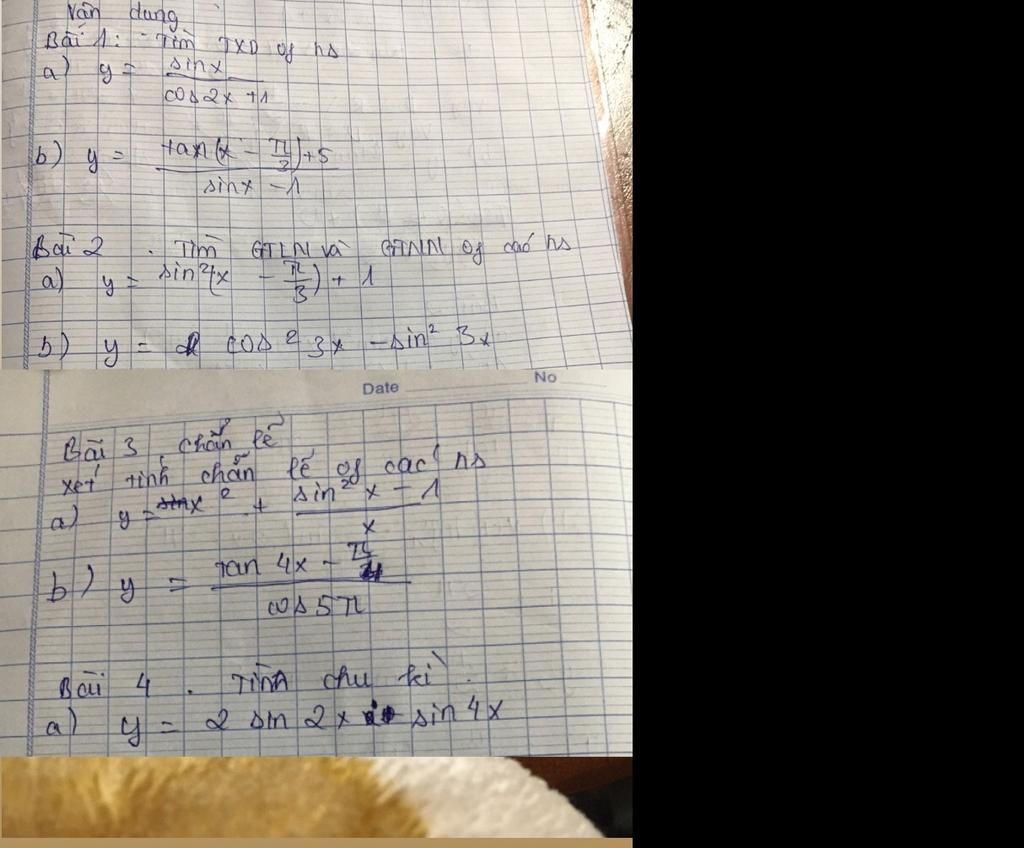 Vận dụng
Bài 1: Tìm TXD of hs
a) y = sinx / cos2x +1
b) y = tan(x - π/3)+5 / sinx -1
Bài 2 . Tìm GTLN và GTNN of các hs
a) y = sin²(x - π/3) + 1
b) y = cos² 3x - sin² 3x
Date No
Bài 3 chẵn lẽ
xét tính chẵn lẽ of các hs
a) y = x² + sin² x - 1 / x
b) y = tan 4x - π / cos 5π
Bài 4 . Tình chu kì
a) y = 2 sin 2x sin 4x